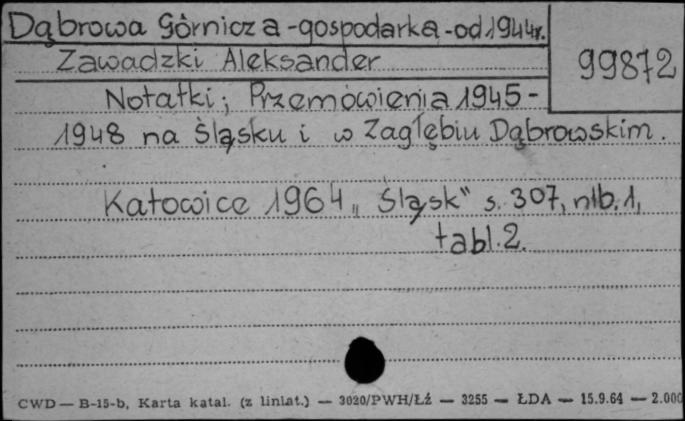 Dąbrowa Górnicza - gospodarka - od 1944r.
Zawadzki Aleksander
99872
Notatki; Przemówienia 1945 -
1948 na śląsku i w Zagłębiu Dąbrowskim.
Katowice 1964 „Śląsk" s. 307, nlb. 1,
tabl. 2.
CWD — B-15-b, Karta katal. (z liniat.) — 3020/PWH/Łź — 3255 — ŁDA — 15.9.64 — 2.000